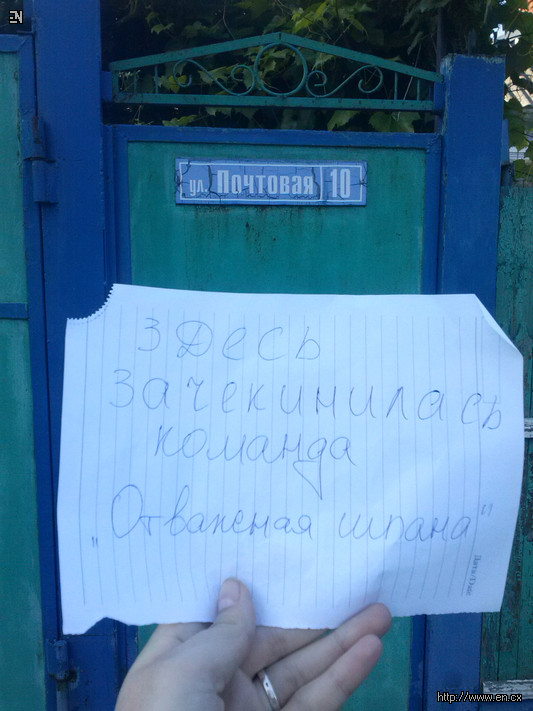 EN
ул. Почтовая 10
Здесь
Зачекинилась
команда
"Отважная шпана"
Date/Time
http://www.en.cx